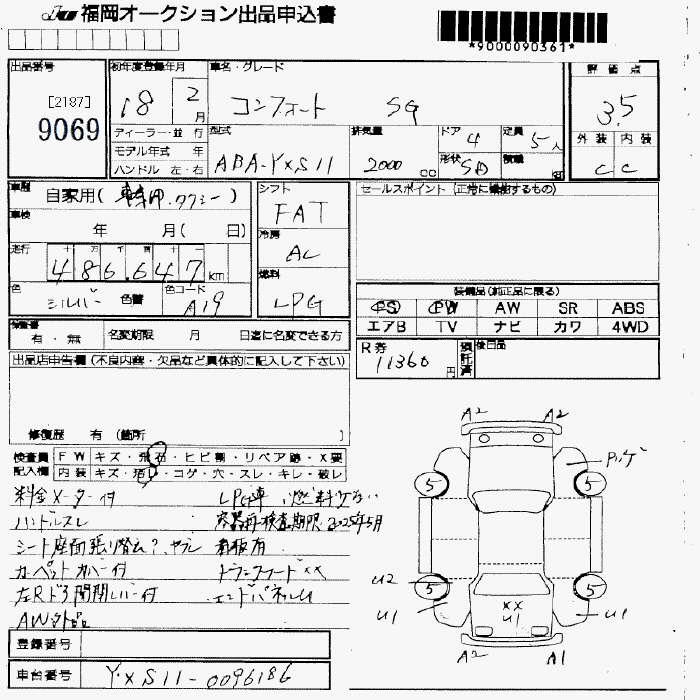 福岡オークション出品申込書
*9000090361*
出品番号
[2187]
9069
初年度登録年月
18 2月
車名・グレード
コンフォート SG
評価点
3.5
ディーラー・並行
モデル年式 年
ハンドル 左・右
型式
ABA-YXS11
排気量
2000 cc
ドア
4
形状
SD
定員
5人
積載
外装 内装
C C
車歴
自家用(乗用・タクシー)
車検
年 月(日)
走行 十 万 千 百 十 一
486,647 km
色
シルバー 色替
色コード
A19
シフト
FAT
冷房
AC
燃料
LPG
セールスポイント(正常に機能するもの)
装備品(純正品に限る)
PS PW AW SR ABS
エアB TV ナビ カワ 4WD
有・無
名変期限 月 日迄に名変できる方
R券
11360円
預託済
後日品
出品店申告欄(不良内容・欠品など具体的に記入して下さい)
修復歴 有(箇所 )
検査員記入欄
FW キズ・飛石・ヒビ割・リペア跡・X要
内装 キズ・汚れ・コゲ・穴・スレ・キレ・破レ
料金メーター付
ハンドルスレ
シート座面張り替え?、ヤブレ
カーペットカバー付
左Rドア開閉レバー付
AW外品
LPG車 燃料少ない
容器再検査期限2025年5月
看板有
トランクフードXX
エンドパネルU
A2 A2
5 5
5 5
U2
U1
XX
U1
U1
A2 A1
登録番号
車台番号
YXS11-0096186